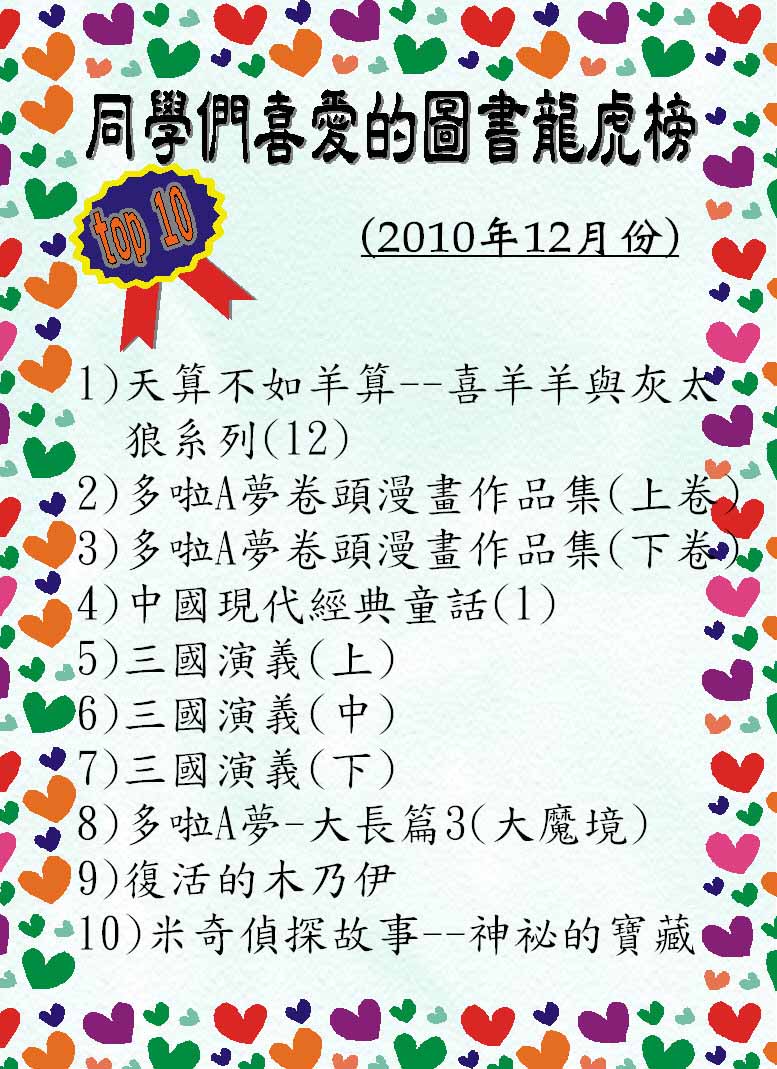 同學們喜愛的圖書龍虎榜
top 10
(2010年12月份)
1)天算不如羊算--喜羊羊與灰太
狼系列(12)
2)多啦A夢卷頭漫畫作品集(上卷)
3)多啦A夢卷頭漫畫作品集(下卷)
4)中國現代經典童話(1)
5)三國演義(上)
6)三國演義(中)
7)三國演義(下)
8)多啦A夢-大長篇3(大魔境)
9)復活的木乃伊
10)米奇偵探故事--神祕的寶藏